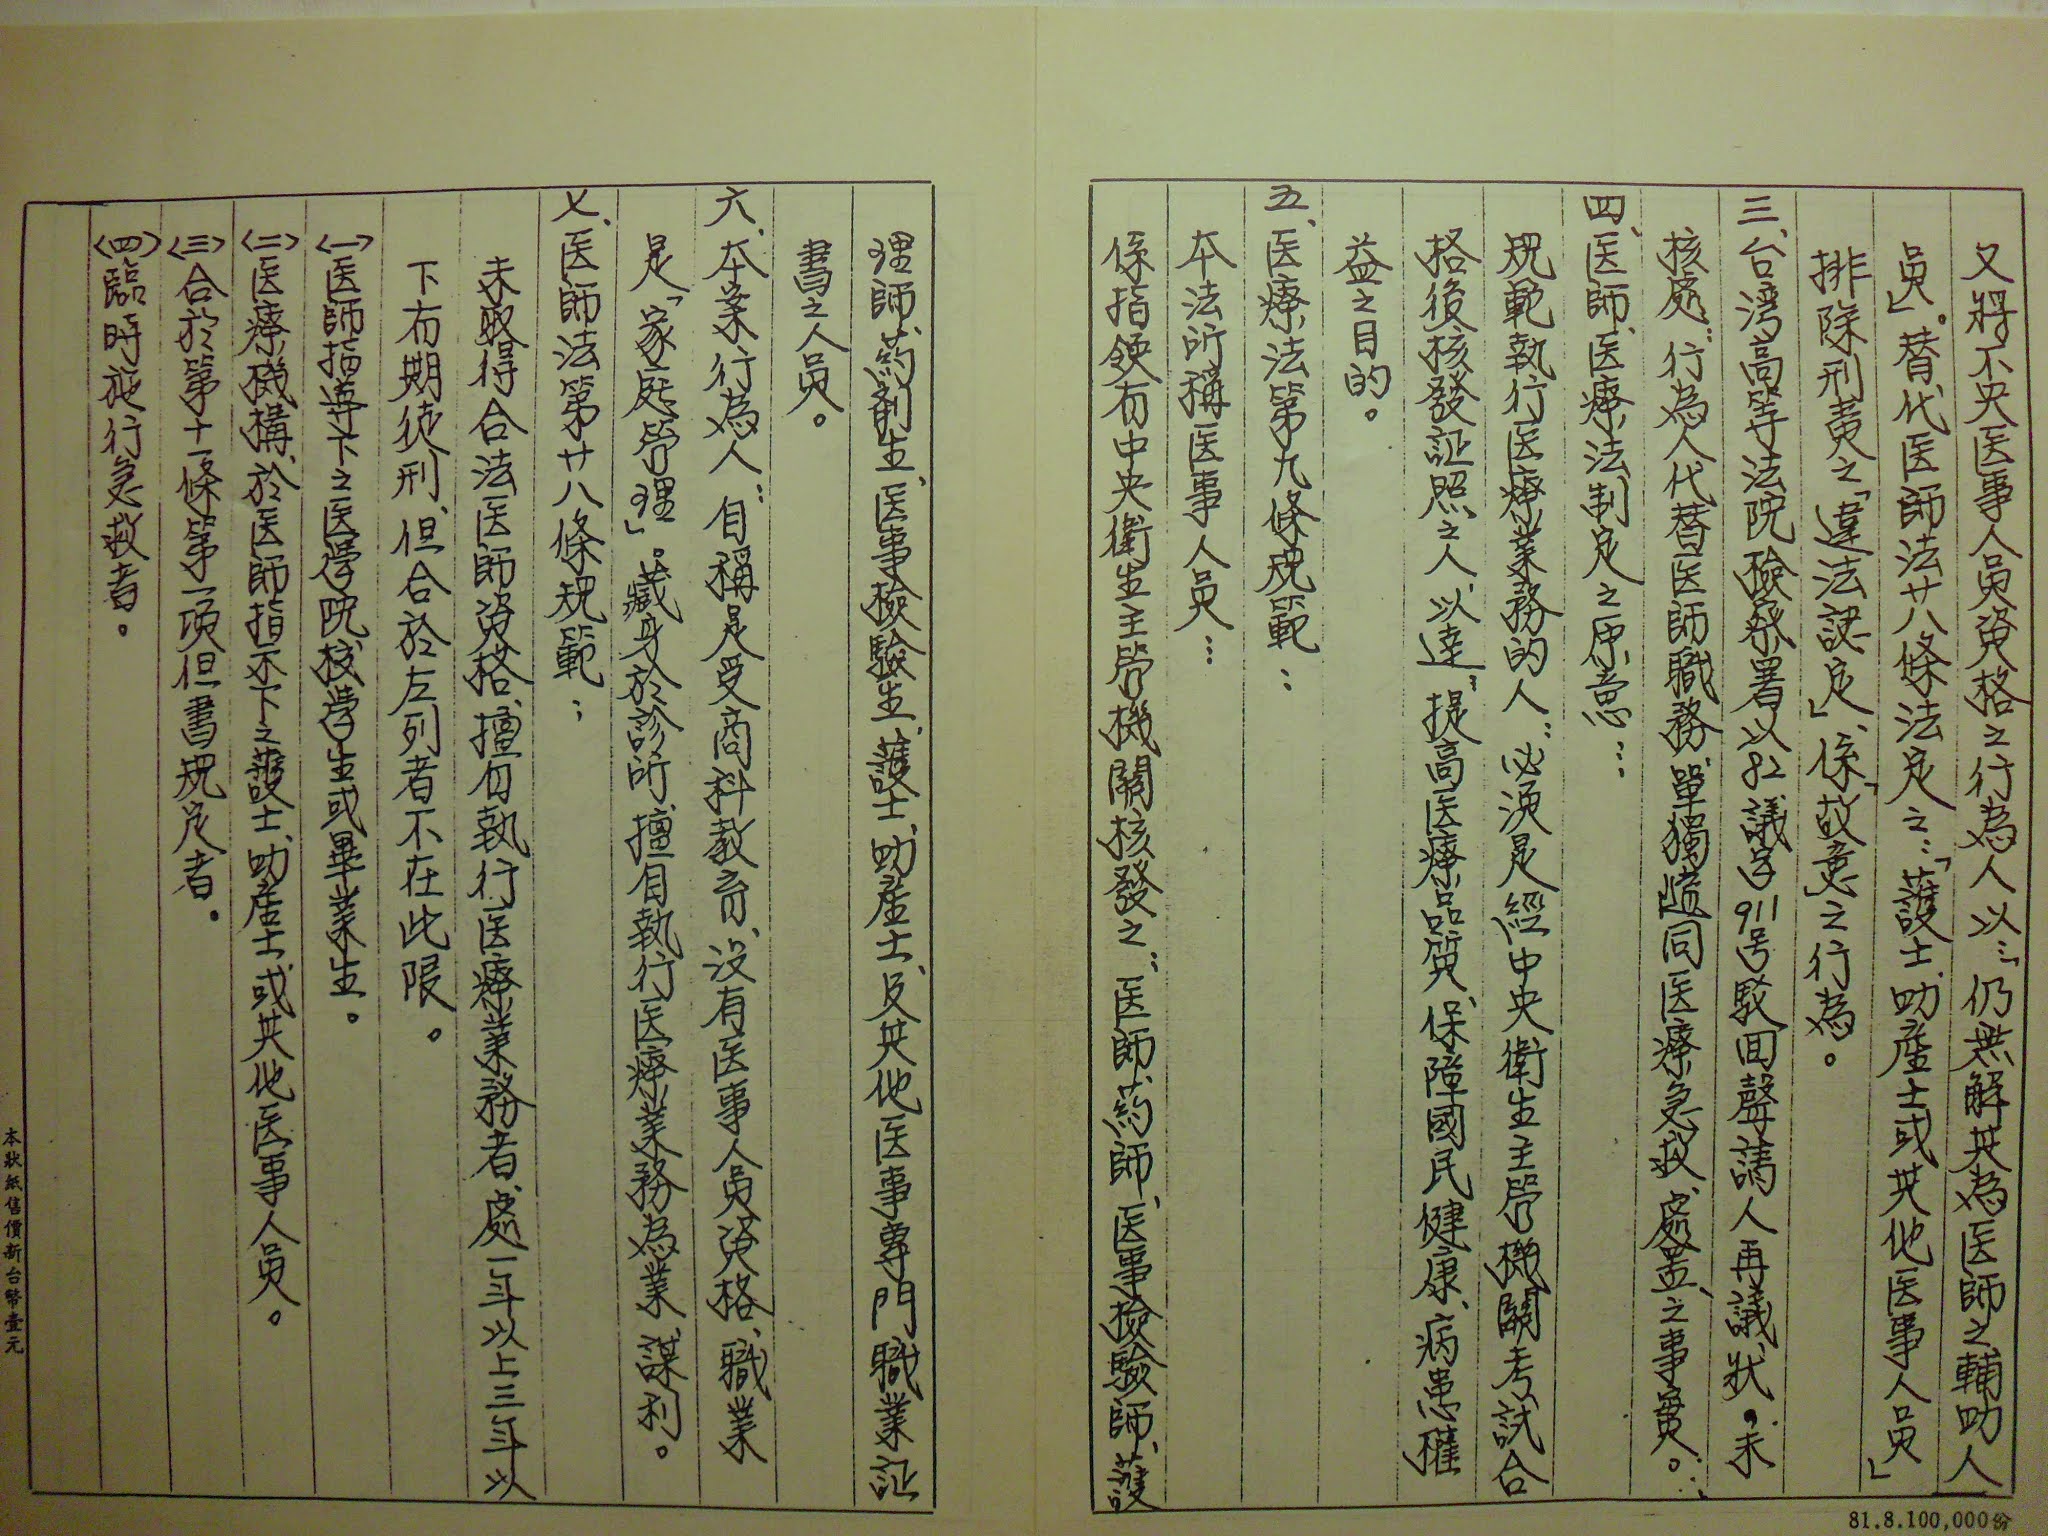 又將不央医事人員資格之行為人以：「仍無解其為医師之輔助人
員」。替代医師法廿八條法定之：「護士、助產士或其他医事人員」
排除刑責之「違法認定」、係「故意」之行為。
三、台湾高等法院檢察署以82議字911号駁回聲請人再議狀。未
核處：行為人代替医師職務、單獨隨同医療急救、處置、之事實。：
四、医師、医療法制定之原意：
規範執行医療業務的人：必須是經中央衛生主管機關考試合
格後核發証照之人、以達：提高医療品質、保障國民健康、病患權
益之目的。
五、医療法第九條規範：
本法所稱医事人員：
係指領有中央衛生主管機關核發之：医師、葯師、医事檢驗師、護
理師、葯劑生、医事檢驗生、護士、助產士、及其他医事專門職業証
書之人員。
六、本案行為人：自稱是受商科教育、没有医事人員資格、職業
是「家庭管理」。藏身於診所、擅自執行医療業務為業、謀利。
七、医師法第廿八條規範：
未取得合法医師資格、擅自執行医療業務者、處一年以上三年以
下有期徒刑、但合於左列者不在此限。
〈一〉医師指導下之医學院、校學生或畢業生。
〈二〉医療機構、於医師指示下之護士、助產士或其他医事人員。
〈三〉合於第十一條第一項但書規定者。
〈四〉臨時施行急救者。
本狀紙售價新台幣壹元
81.8.100,000份